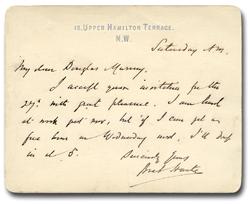 15, UPPER HAMILTON TERRACE.
N.W.
Saturday A.M.
My dear Douglas Murray,
I accept your invitation for the
29th with great pleasure. I am hard
at work just now, but if I can get a
free hour on Wednesday next, I'll drop
in at 5.
Sincerely yours
Bret Harte